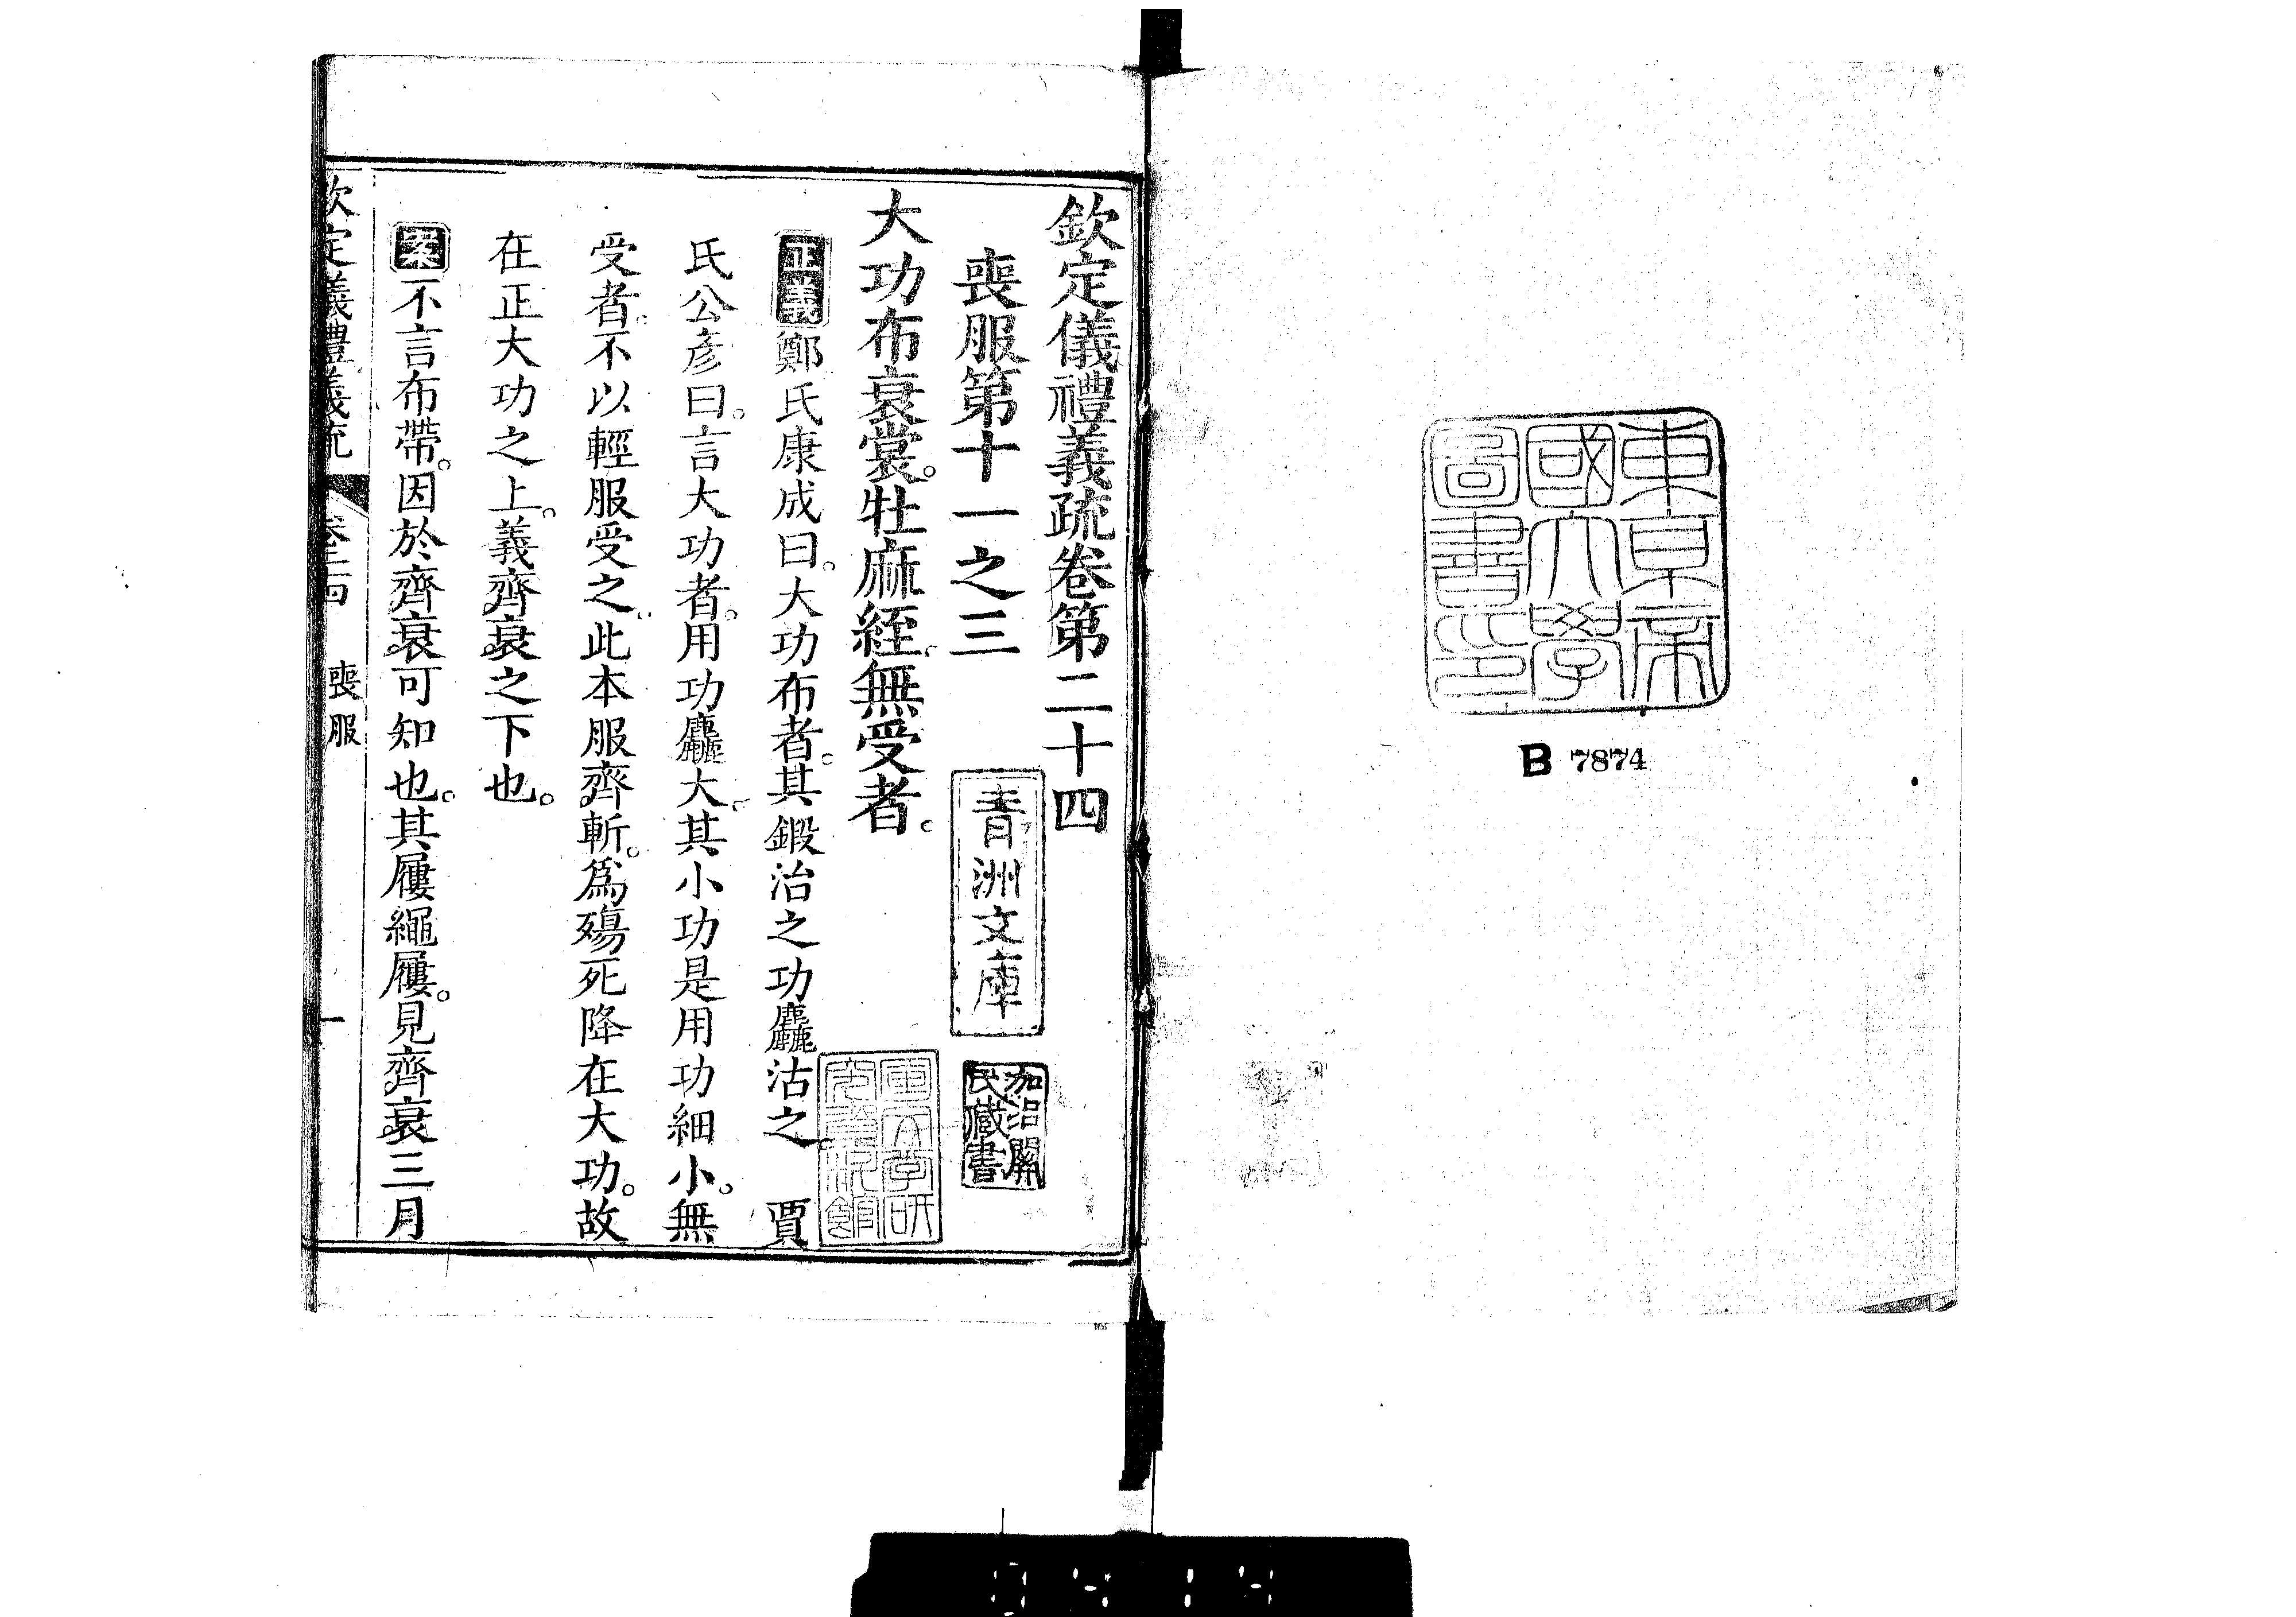 東京帝
國大學
圖書印
B 7874
欽定儀禮義疏卷第二十四
喪服第十一之三
青洲文庫
大功布衰裳。牡麻絰。無受者。
正義 鄭氏康成曰。大功布者。其鍛治之功麤沽之。 賈
氏公彥曰。言大功者。用功麤大。其小功是用功細小。無
受者。不以輕服受之。此本服齊斬。爲殤死降在大功。故
在正大功之上。義齊衰之下也。
案 不言布帶。因於齊衰可知也。其屨繩屨。見齊衰三月
欽定義禮義疏 卷二十四 喪服 一